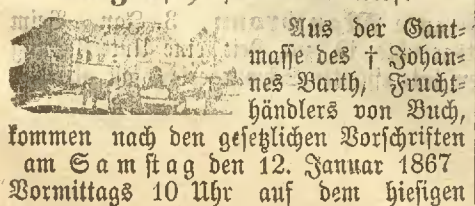 Aus der Gant-
masse des † Johan-
nes Barth, Frucht-
händlers von Buch,
kommen nach den gesetzlichen Vorschriften
am Samstag den 12. Januar 1867
Vormittags 10 Uhr auf dem hiesigen